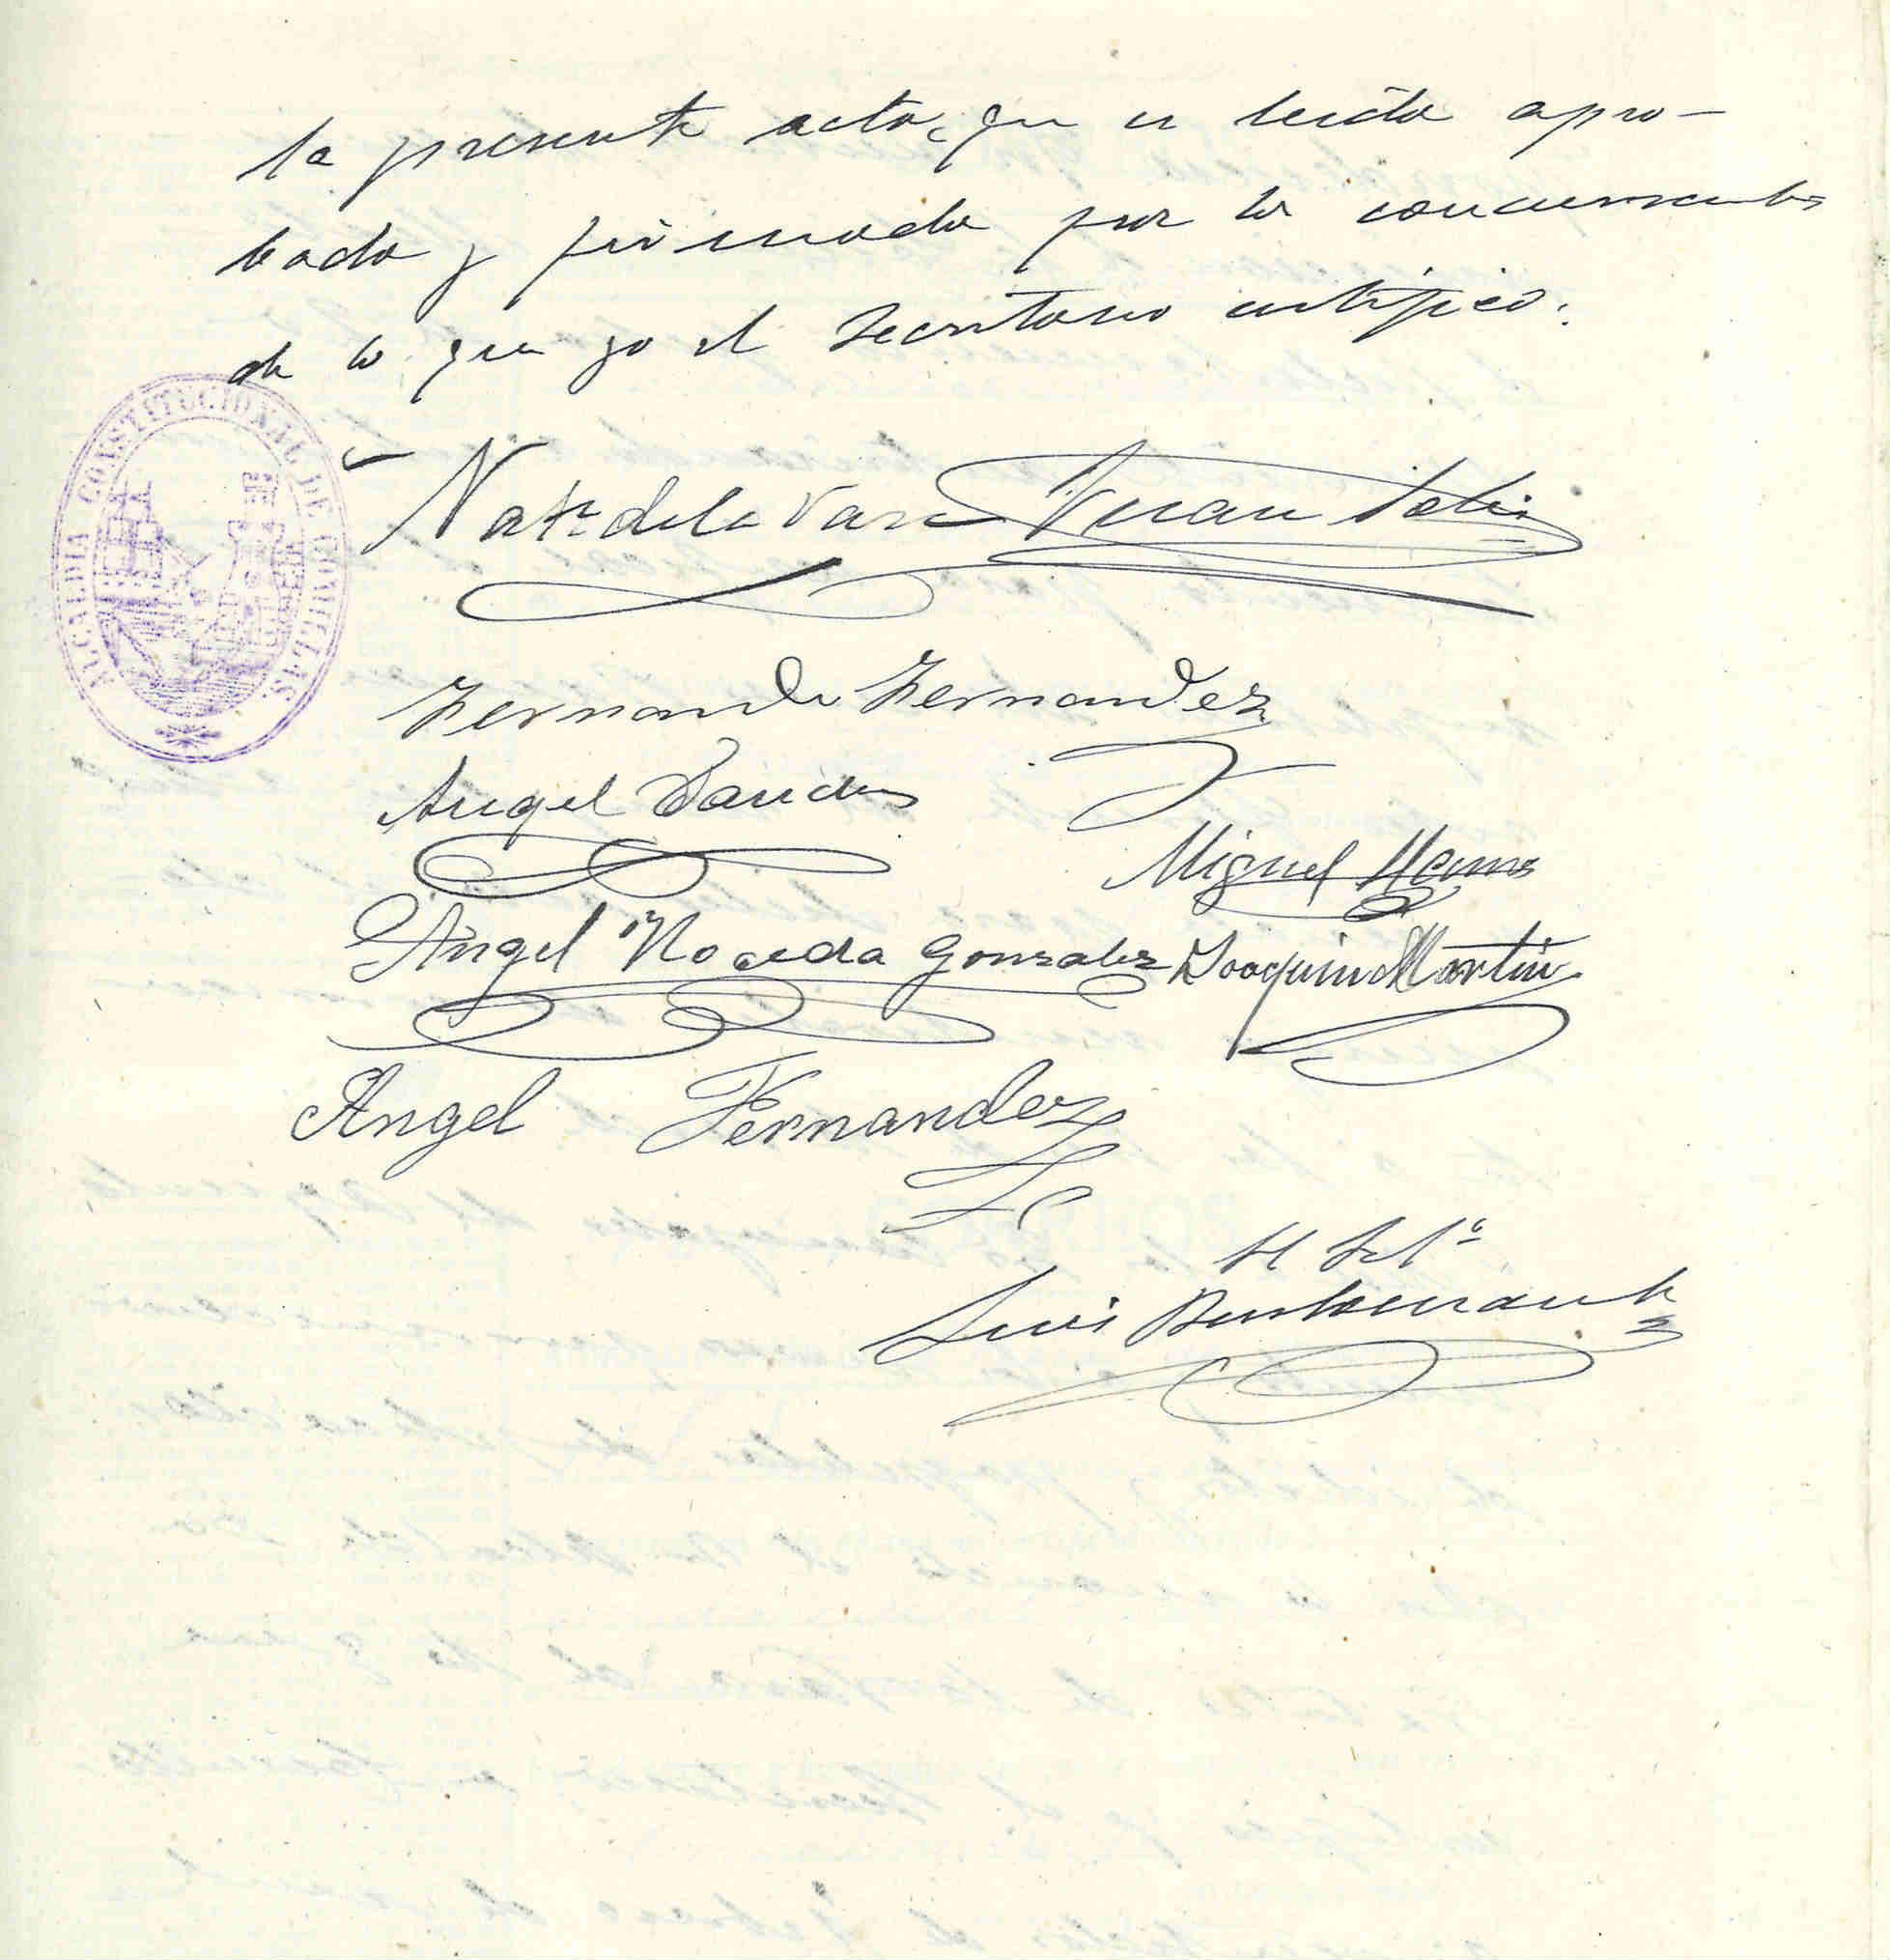 la presente acta, que es leida apro-
bada y firmada por los concurrentes
de lo que yo el Secretario certifico:
ALCALDIA CONSTITUCIONAL DE COMILLAS.
de la Vara Juan
Fernando Fernandez
Angel Sanchez
Miguel
Angel Noceda Gonzalez Joaquin Martin
Angel Fernandez
El Srio
Luis Bustamante